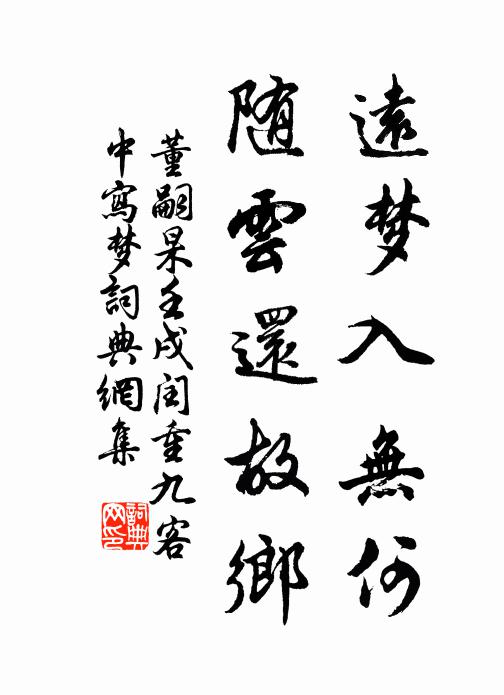 遠梦入無何
随雲還故鄉
董嗣杲壬戌閏重九客
中寫梦詞典網集
詞典网印